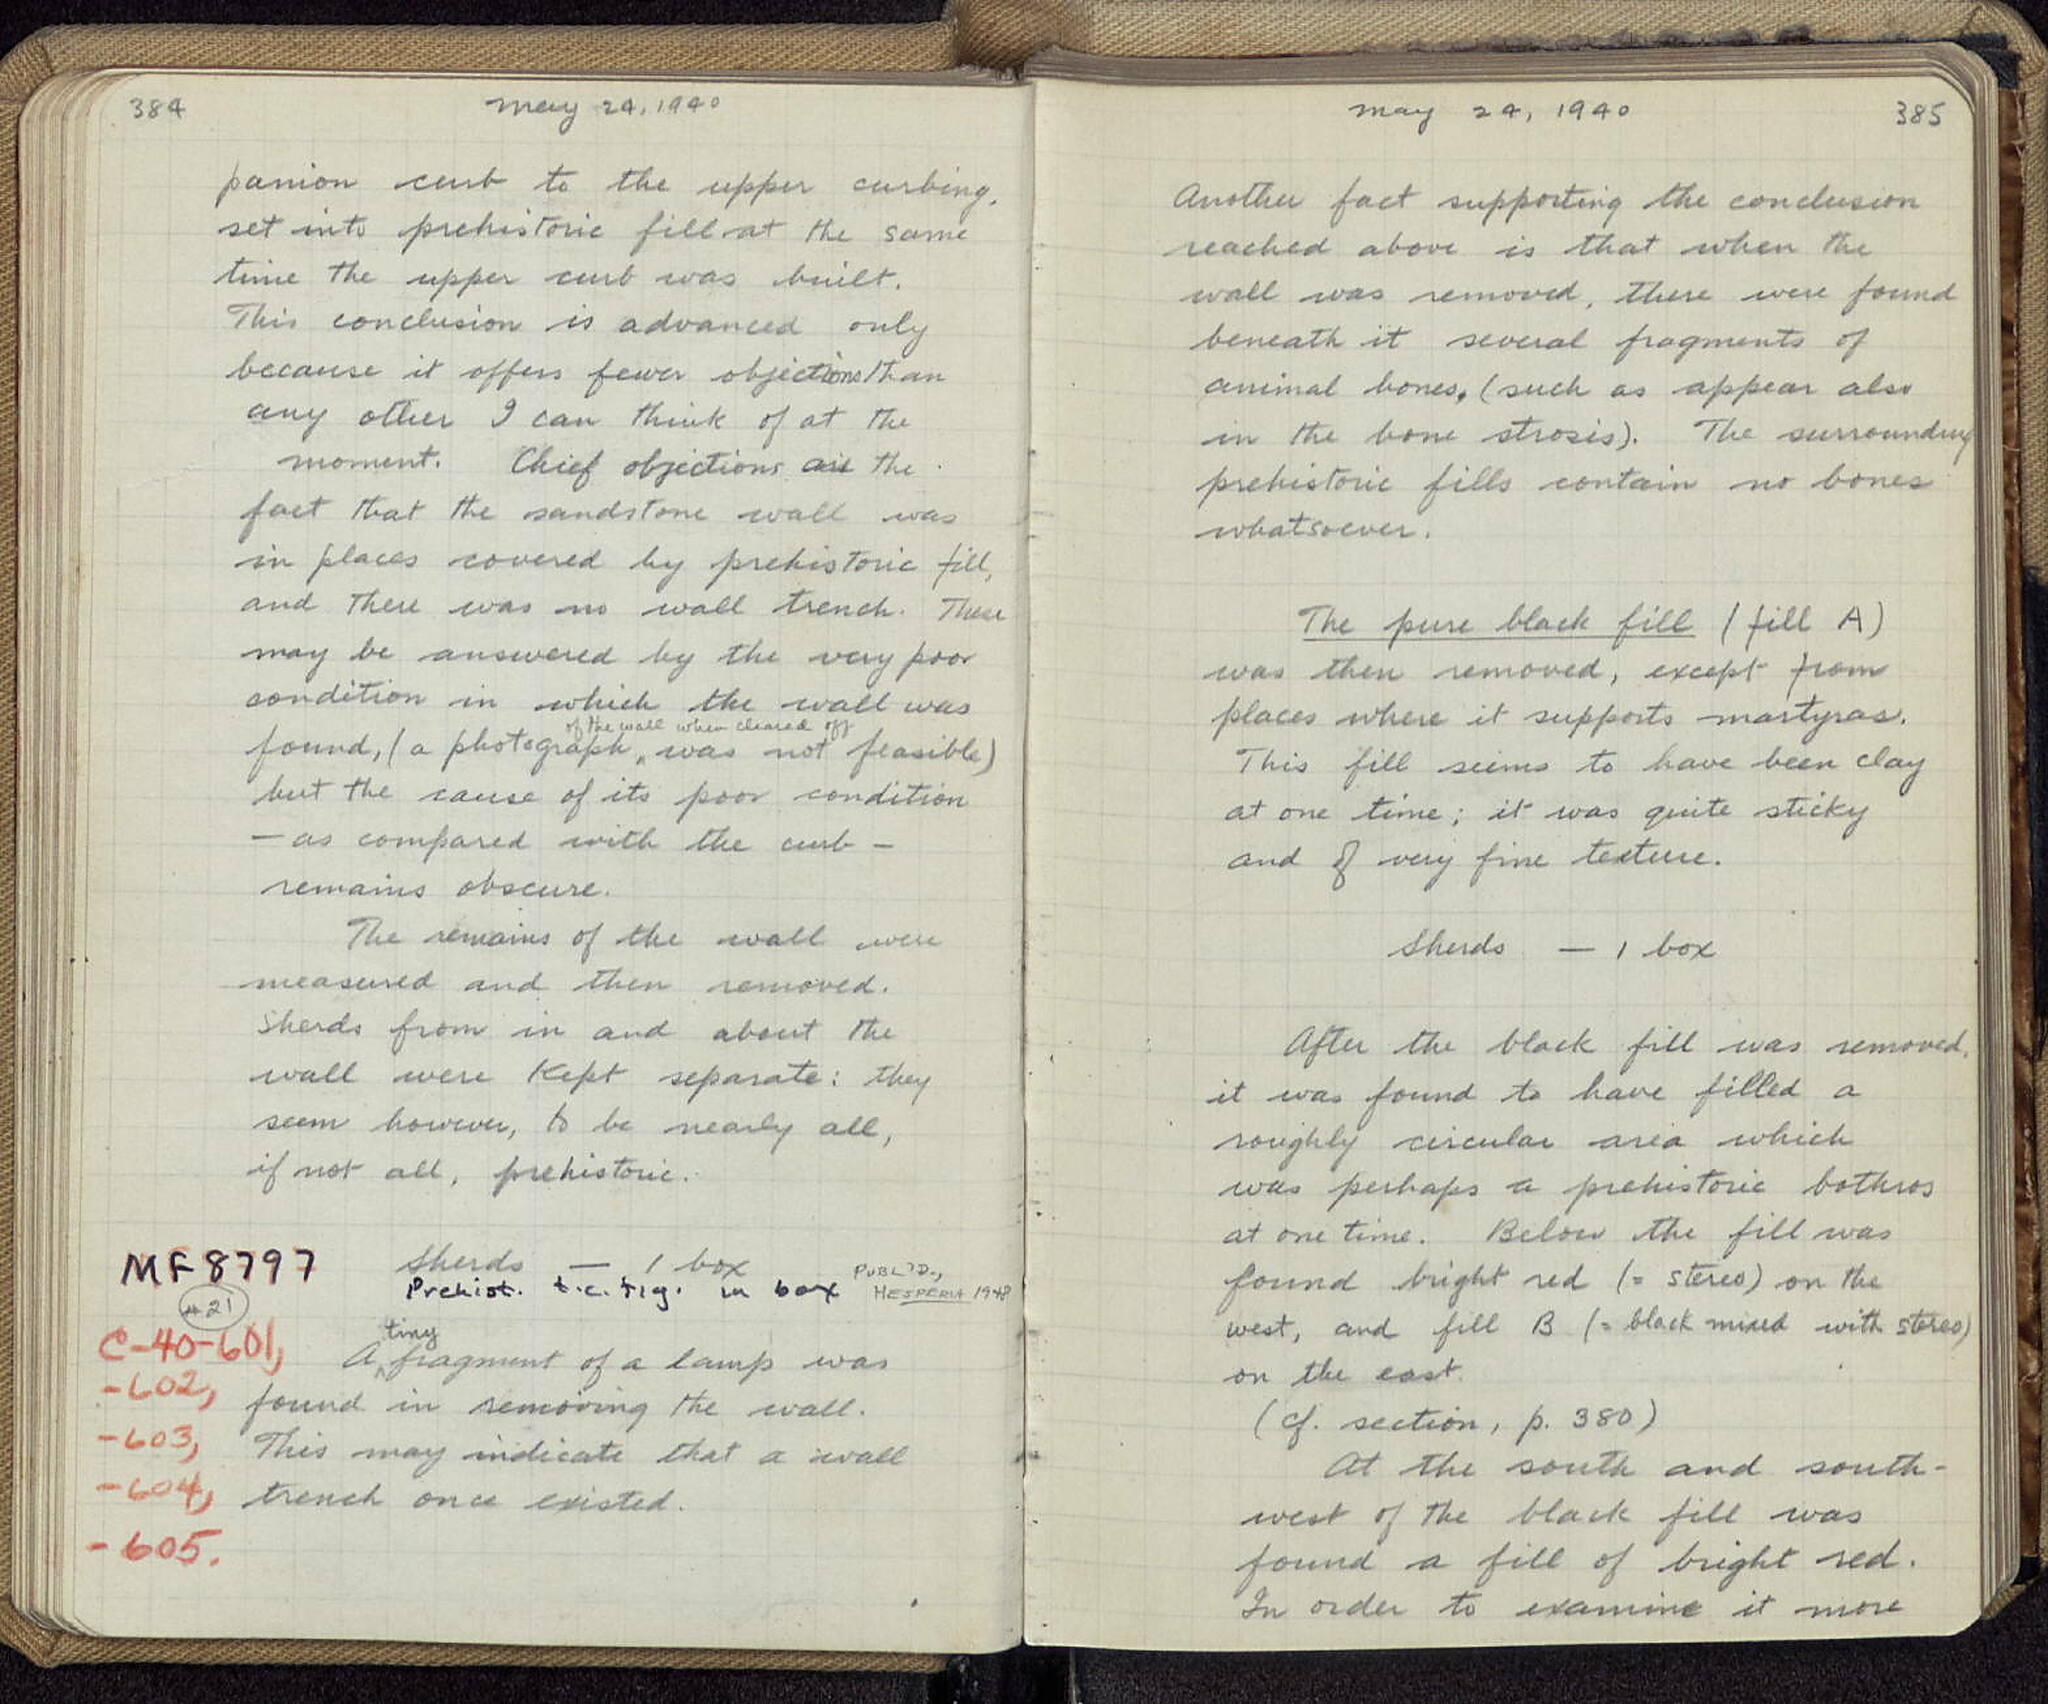 384
May 24, 1940
panion curb to the upper curbing,
set into prehistoric fill at the same
time the upper curb was built.
This conclusion is advanced only
because it offers fewer objections than
any other I can think of at the
moment. Chief objections are the
fact that the sandstone wall was
in places covered by prehistoric fill,
and there was no wall trench. These
may be answered by the very poor
condition in which the wall was
of the wall when cleared off
found, (a photograph ‸ was not feasible)
but the cause of its poor condition
— as compared with the curb —
remains obscure.
The remains of the wall were
measured and then removed.
Sherds from in and about the
wall were kept separate: they
seem however, to be nearly all,
if not all, prehistoric.
MF 8797
Sherds — 1 box
Prehist. t.c. fig. in box
PUBL'D.,
HESPERIA 1948
#21
C-40-601,
-602,
-603,
-604,
-605.
tiny
A ‸ fragment of a lamp was
found in removing the wall.
This may indicate that a wall
trench once existed.
May 24, 1940
385
Another fact supporting the conclusion
reached above is that when the
wall was removed, there were found
beneath it several fragments of
animal bones, (such as appear also
in the bone strosis). The surrounding
prehistoric fills contain no bones
whatsoever.
The pure black fill (fill A)
was then removed, except from
places where it supports martyras.
This fill seems to have been clay
at one time; it was quite sticky
and of very fine texture.
Sherds — 1 box
After the black fill was removed,
it was found to have filled a
roughly circular area which
was perhaps a prehistoric bothros
at one time. Below the fill was
found bright red (= stereo) on the
west, and fill B (= black mixed with stereo)
on the east.
(cf. section, p. 380)
At the south and south-
west of the black fill was
found a fill of bright red.
In order to examine it more